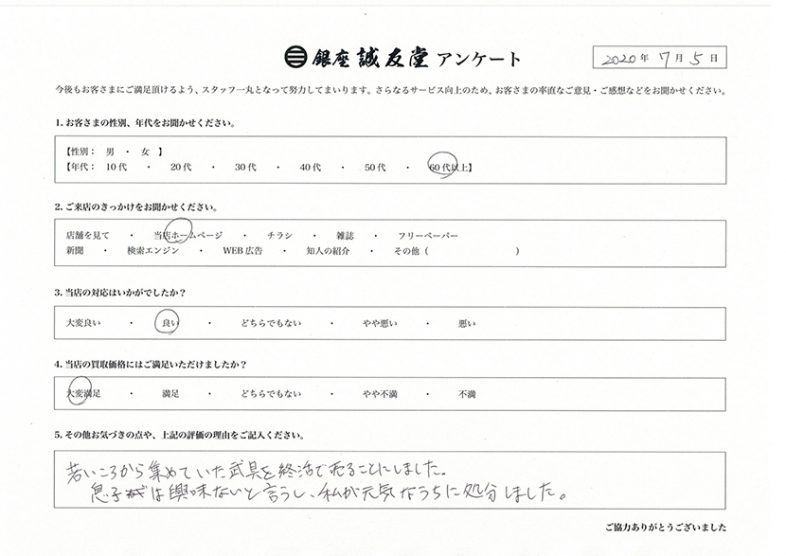 銀座 誠友堂 アンケート
2020年 7月 5日
今後もお客さまにご満足頂けるよう、スタッフ一丸となって努力してまいります。さらなるサービス向上のため、お客さまの率直なご意見・ご感想などをお聞かせください。
1. お客さまの性別、年代をお聞かせください。
【性別： 男 ・ 女 】
【年代： 10代 ・ 20代 ・ 30代 ・ 40代 ・ 50代 ・ 60代以上】
2. ご来店のきっかけをお聞かせください。
店舗を見て ・ 当店ホームページ ・ チラシ ・ 雑誌 ・ フリーペーパー
新聞 ・ 検索エンジン ・ WEB広告 ・ 知人の紹介 ・ その他（ ）
3. 当店の対応はいかがでしたか？
大変良い ・ 良い ・ どちらでもない ・ やや悪い ・ 悪い
4. 当店の買取価格にはご満足いただけましたか？
大変満足 ・ 満足 ・ どちらでもない ・ やや不満 ・ 不満
5. その他お気づきの点や、上記の評価の理由をご記入ください。
若いころから集めていた武具を終活で売ることにしました。
息子は興味ないと言うし、私が元気なうちに処分しました。
ご協力ありがとうございました